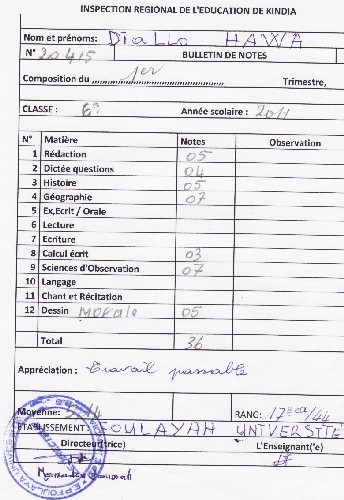 INSPECTION REGIONAL DE L'EDUCATION DE KINDIA
Nom et prénoms: DIALLO HAWA
N° 20415 BULLETIN DE NOTES
Composition du 1er Trimestre,
CLASSE : 6e Année scolaire : 2011
N° Matière Notes Observation
1 Rédaction 05
2 Dictée questions 04
3 Histoire 05
4 Géographie 07
5 Ex,Ecrit / Orale
6 Lecture
7 Ecriture
8 Calcul écrit 03
9 Sciences d'Observation 07
10 Langage
11 Chant et Récitation
12 Dessin Morale 05
Total 36
Appréciation : Travail passable
Moyenne: 14 RANG: 17 /44
ETABLISSEMENT: FOULAYAH UNIVERSITE
Directeur(trice) L'Enseignant('e)